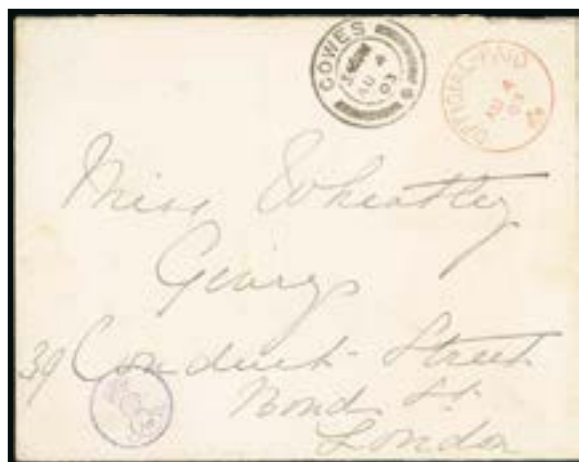 COWES
AU 4
03
OFFICIAL PAID
AU 4
03
Miss Wheatley
39 Conduit Street
Bond St.
London